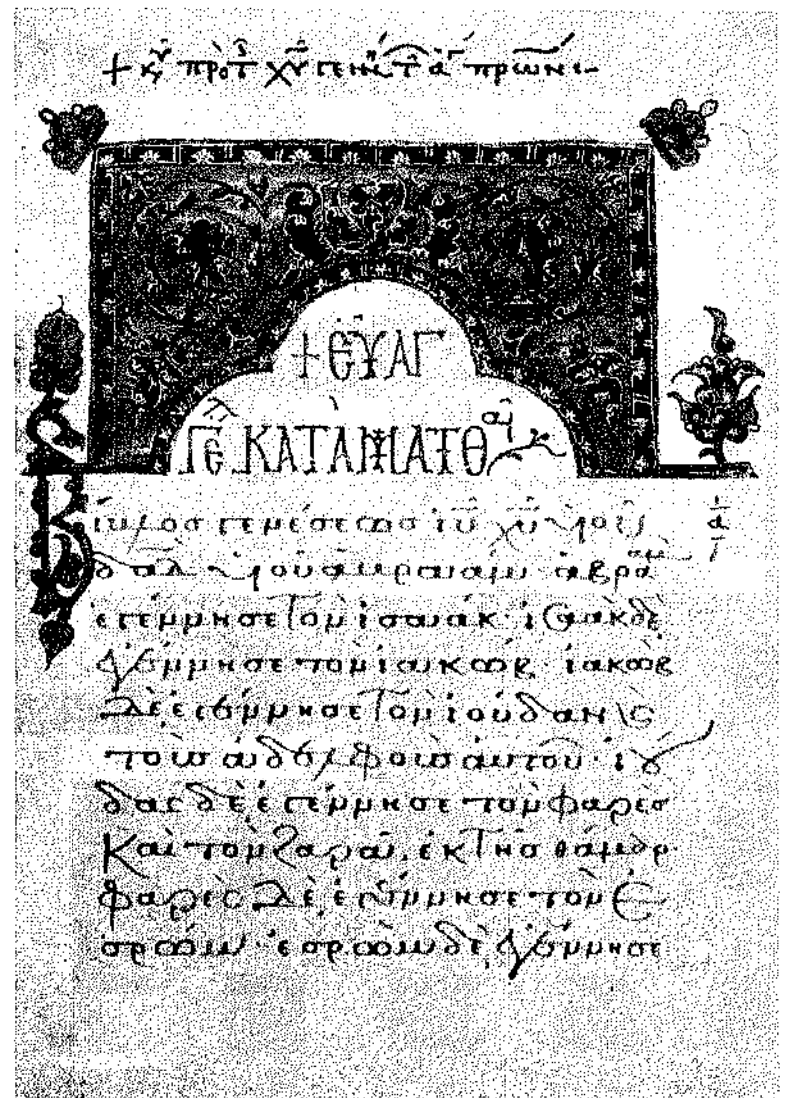 + ΕΥΑΓ
ΓΕ ΚΑΤΑ ΜΑΤΘαι
Βίβλος γενέσεως ιυ χυ υιοῦ
δαδ υιοῦ ἀβραάμ· ἀβραὰμ
ἐγέννησε τὸν ἰσαάκ· ἰσαὰκ δὲ
ἐγέννησε τὸν ἰακώβ· ἰακὼβ
δὲ ἐγέννησε τὸν ἰούδαν κ
τοὺς ἀδελφοὺς αὐτοῦ· ἰού
δας δὲ ἐγέννησε τὸν φαρὲς
Καὶ τὸν ζαρὰ, ἐκ τῆς θάμαρ·
φαρὲς δὲ ἐγέννησε τὸν ἐ
σρώμ· ἐσρὼμ δὲ ἐγέννησε